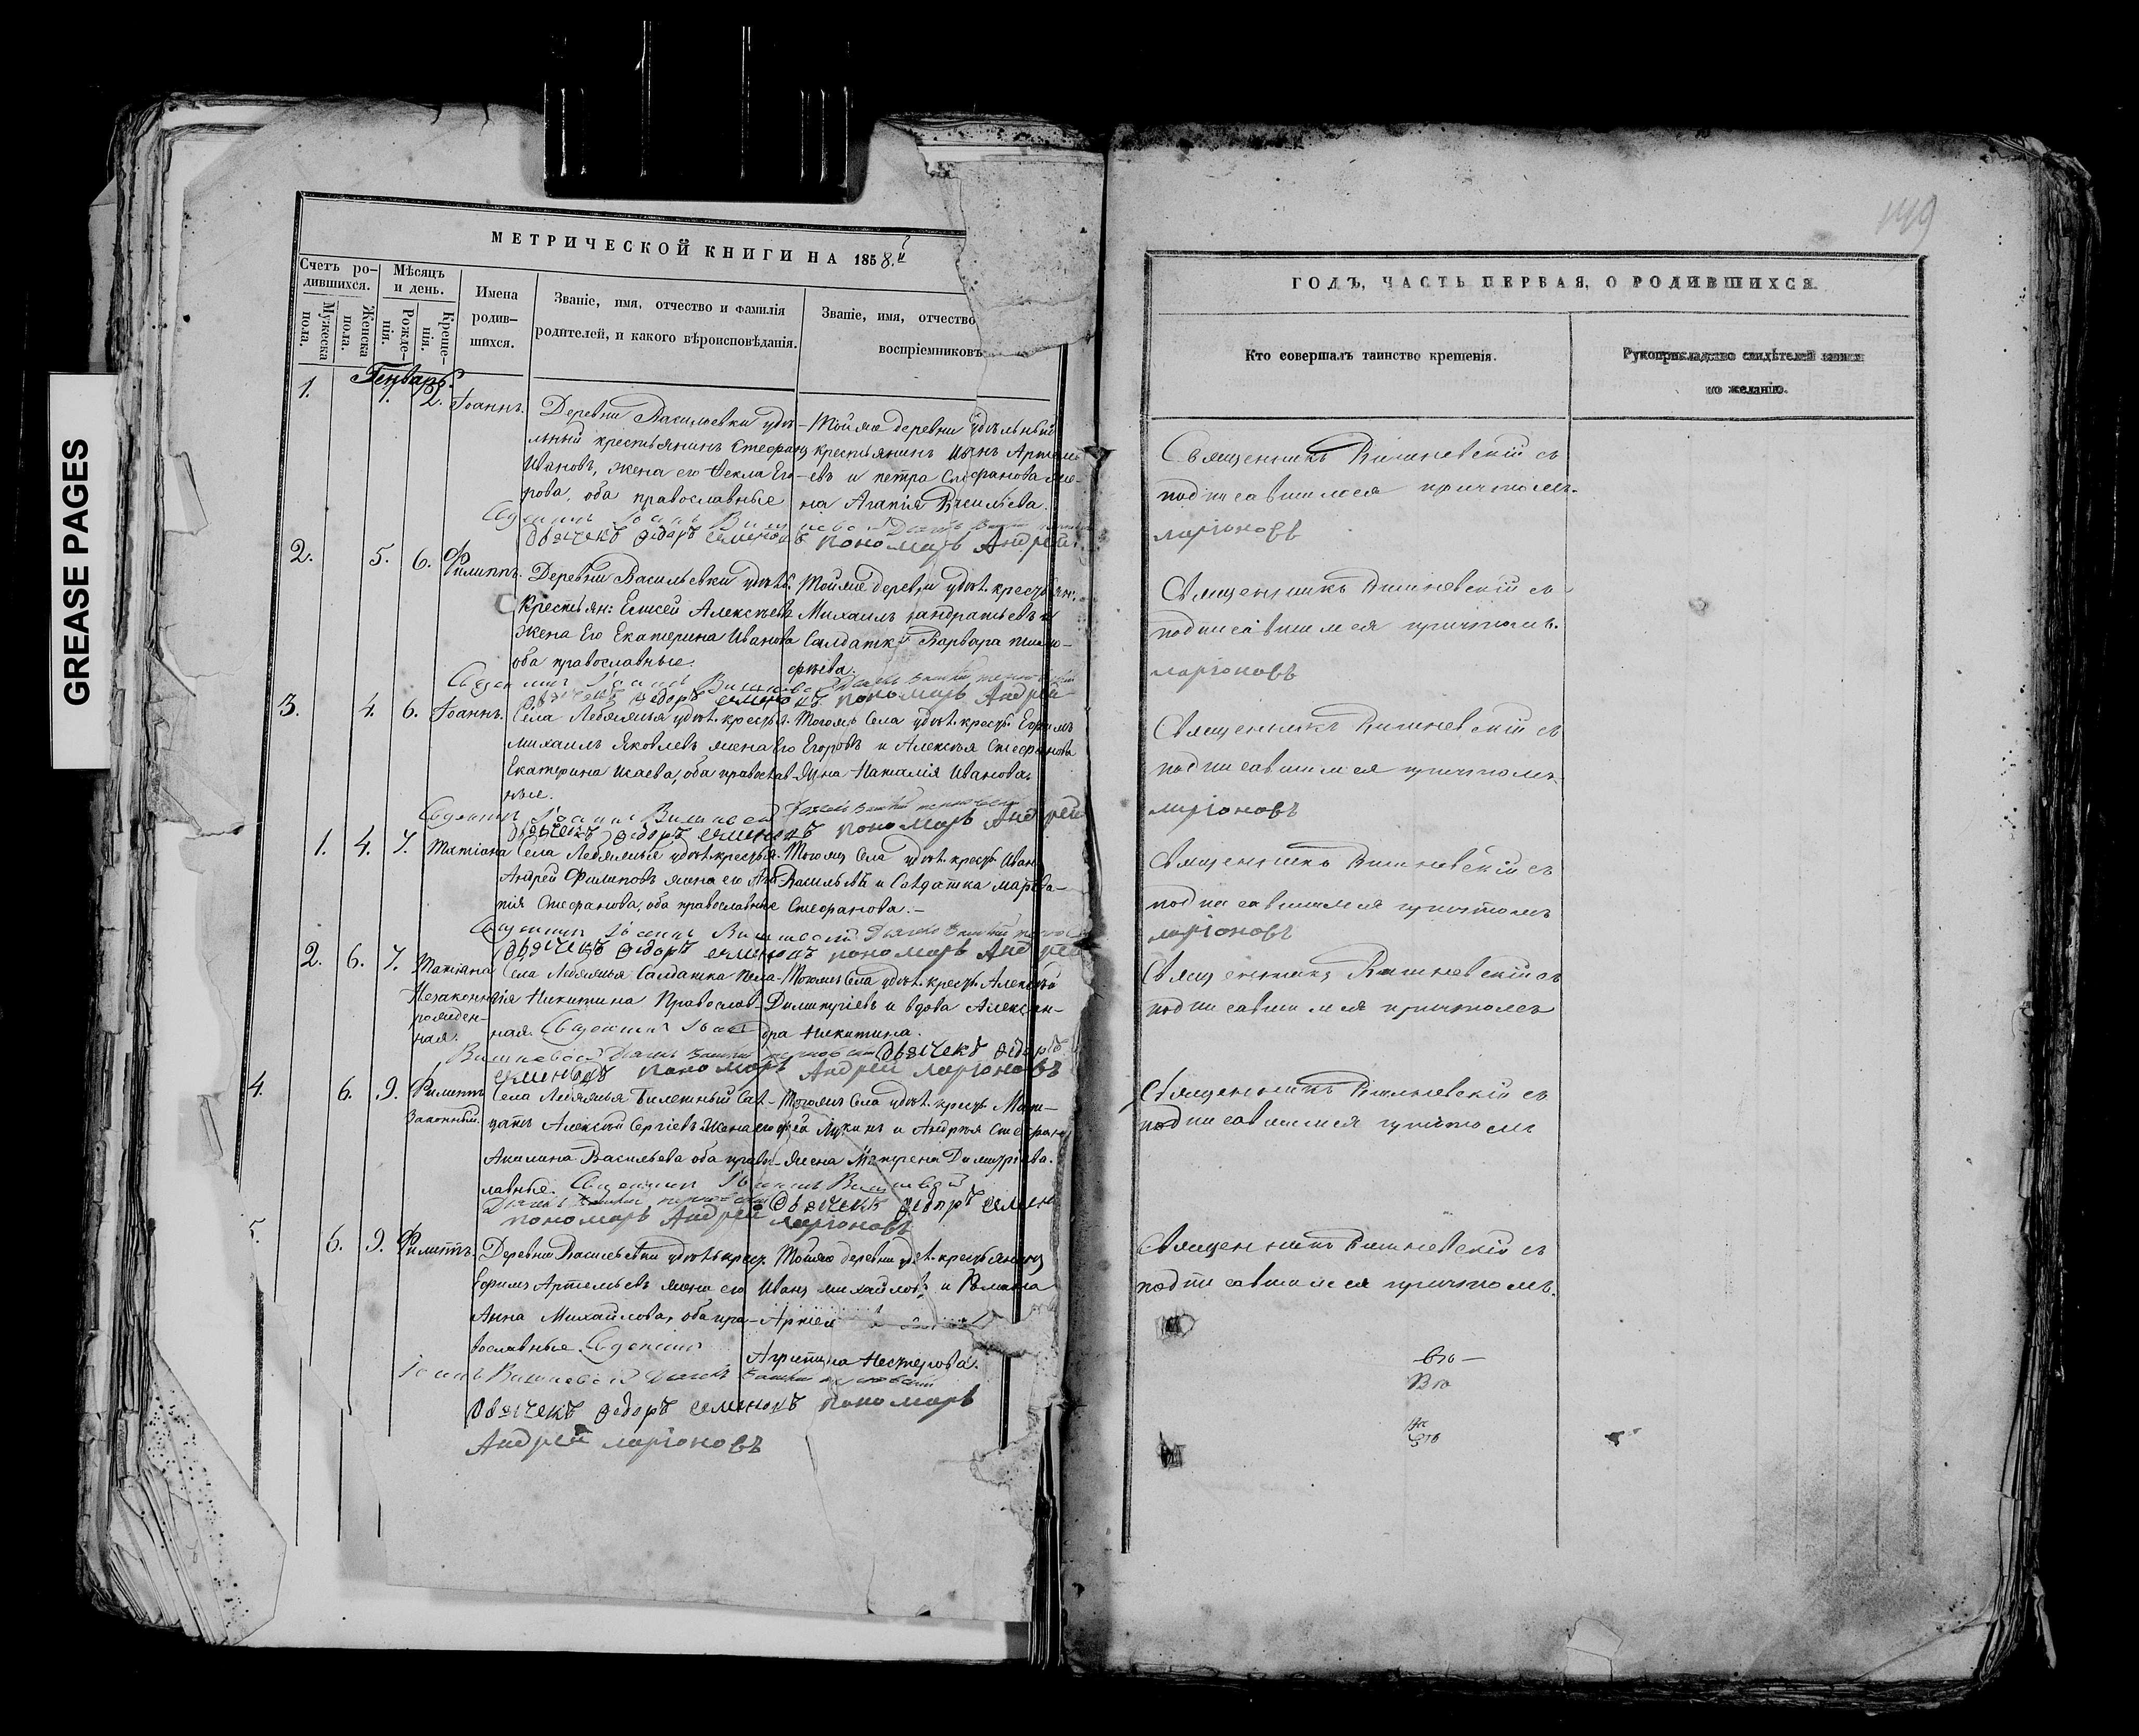 GREASE PAGES
МЕТРИЧЕСКОЙ КНИГИ НА 1858.й
Счетъ ро-
дившихся.
Мужеска
пола.
Женска
пола.
Мѣсяцъ
и день.
Рожде-
нія.
Креще-
нія.
Имена
родив-
шихся.
Званіе, имя, отчество и фамилія
родителей, и какого вѣроисповѣданія.
Званіе, имя, отчество
воспріемниковъ
Генварь.
1. 1. 2. Іоаннъ.
Деревни Васильевки удѣ-
льный крестьянинъ Стефанъ
Ивановъ, жена его Фекла Его-
рова, оба православные
Тойже деревни удѣльный
крестьянинъ Иванъ Артемь-
евъ и петра Стефанова же-
на Агапія Васильева.
дьячекъ Ѳедоръ семеновъ пономарь Андрей
2. 5. 6. Филиппъ.
Деревни Васильевки удѣл.
Крестьян: Елисей Алексѣевъ
жена Его Екатерина Иванова
оба православные.
Тойже деревни удѣл. крестьян:
Михаилъ кандратьевъ и
Салдатка Варвара тимо-
фѣева.
дьячекъ Ѳедоръ семеновъ пономарь Андрей
3. 4. 6. Іоаннъ.
Села Лебяжья удѣл. крестья.
михаилъ Яковлевъ жена Его
Екатерина Исаева, оба православ-
ные.
Тогожъ Села удѣл. крест. Ефимъ
Егоровъ и Алексѣя Стефанова
жена Наталія Иванова.
дьячекъ Ѳедоръ семеновъ пономарь Андрей
1. 4. 7. Татіана
Села Лебяжья удѣл. крестья.
Андрей Филиповъ жена его Ага-
пія Стефанова, оба православные
Тогожъ Села удѣл. крест. Иванъ
Васильевъ и Салдатка марѳа
Стефанова.-
дьячекъ Ѳедоръ семеновъ пономарь Андрей
2. 6. 7. Татіана
Незаконно
рожден-
ная.
Села Лебяжья Салдатка Пела-
гія Никитина Православ-
ная.
Тогожъ Села удѣл. крест. Алексѣй
Димитріевъ и вдова Алексан-
дра Никитина.
дьячекъ Ѳедоръ
семеновъ пономарь Андрей ларіоновъ
4. 6. 9. Филиппъ
Законный.
Села Лебяжья Билетный Сал-
датъ Алексѣй Сергіевъ жена его
Акилина Васильева оба право-
лавные.
Тогожъ Села удѣл. крест. Мат-
фей Лукинъ и Андрея Стефано
жена Матрена Димитріева.
дьячекъ Ѳедоръ семен
пономарь Андрей ларіоновъ
5. 6. 9. Филиппъ.
Деревни Васильевки удѣл. крест.
Ефимъ Артемьевъ жена его
Анна Михайлова, оба пра-
вославные.
Тойже деревни удѣл. крестьянинъ
Иванъ михайловъ и Романа
Агрипина Нестерова.
дьячекъ Ѳедоръ семеновъ пономарь
Андрей ларіоновъ
ГОДЪ, ЧАСТЬ ПЕРВАЯ, О РОДИВШИХСЯ.
Кто совершалъ таинство крещенія.
Рукоприкладство свидѣтелей записи
по желанію.
Священникъ Вишневскій съ
подписавшимся причтомъ.
ларіоновъ
Священникъ Вишневскій съ
подписавшимся причтомъ.
ларіоновъ
Священникъ Вишневскій съ
подписавшимся причтомъ.
ларіоновъ
Священникъ Вишневскій съ
подписавшимся причтомъ
ларіоновъ
Священникъ Вишневскій съ
подписавшимся причтомъ
Священникъ Вишневскій съ
подписавшимся причтомъ
Священникъ Вишневскій съ
подписавшимся причтомъ.